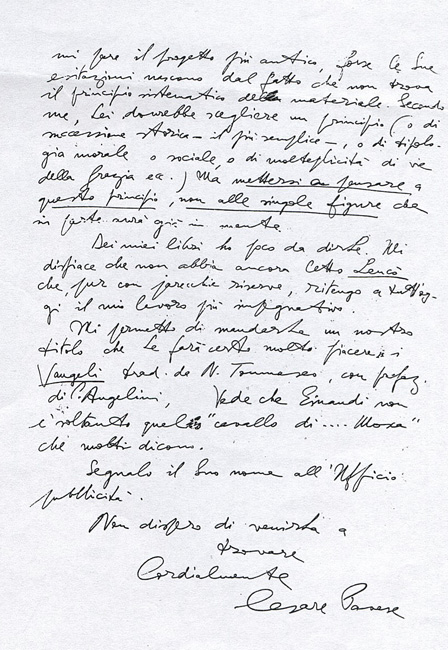 mi pare il progetto più antico, forse le Sue
esitazioni nascono dal fatto che non trova
il principio sistematico della materiale. Secondo
me, Lei dovrebbe scegliere un principio (o di
successione storica – il più semplice –, o di tipolo-
gia morale o sociale, o di molteplicità di vie
della Grazia ecc.) Ma mettersi a pensare a
questo principio, non alle singole figure che
in parte avrà già in mente.
Dei miei libri ho poco da dirLe. Mi
dispiace che non abbia ancora letto Leucò
che, pur con parecchie riserve, ritengo a tutt'og-
gi il mio lavoro più impegnativo.
Mi permetto di mandarLe un nostro
titolo che Le farà certo molto piacere: i
Vangeli trad. da N. Tommaseo, con prefaz.
di C. Angelini, Vede che Einaudi non
è soltanto quel "cavallo di .... Mosca"
che molti dicono.
Segnalo il Suo nome all'Ufficio
pubblicità.
Non dispero di venirLa a
trovare
Cordialmente
Cesare Pavese